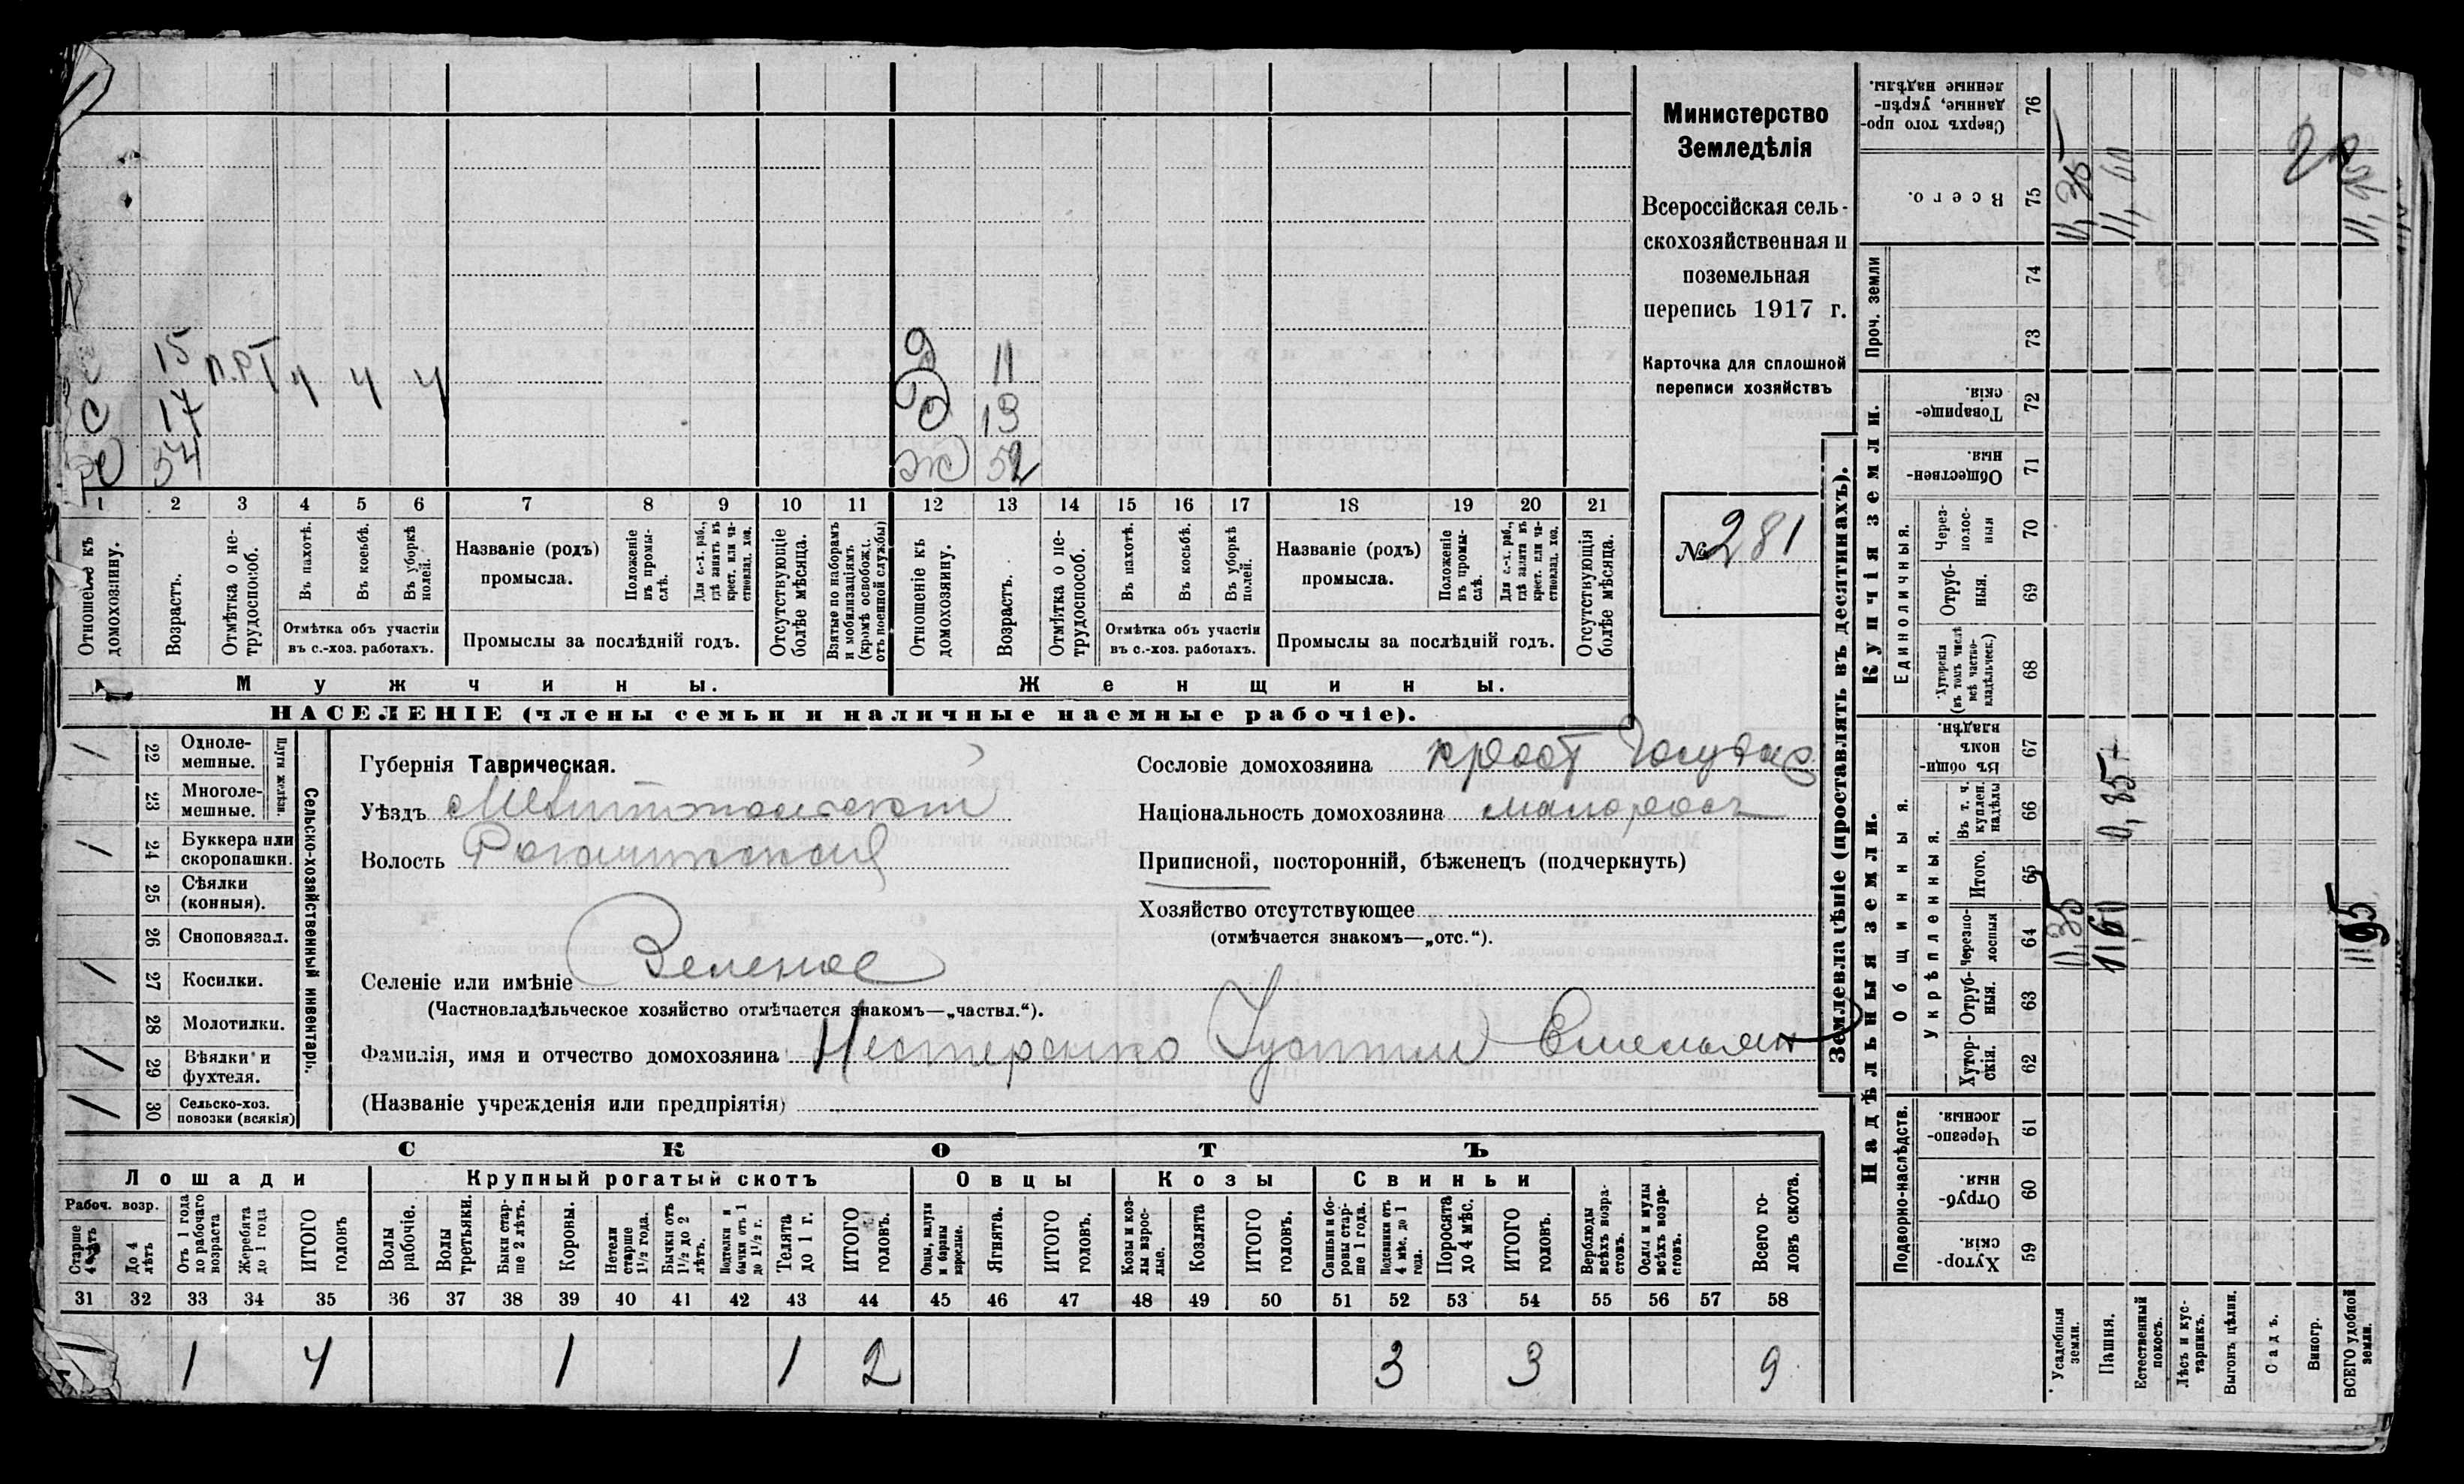 Министерство
Земледѣлія
Всероссійская сель-
скохозяйственная и
поземельная
перепись 1917 г.
Карточка для сплошной
переписи хозяйствъ
№ 281
15 п.рт ч ч ч
с 17
54
д 11
13
ж 52
1 2 3 4 5 6 7 8 9 10 11 12 13 14 15 16 17 18 19 20 21
Отношеніе къ домохозяину.
Возрастъ.
Отмѣтка о не-трудоспособ.
Въ пахотѣ.
Въ косьбѣ.
Въ уборкѣ полей.
Отмѣтка объ участіи
въ с.-хоз. работахъ.
Названіе (родъ)
промысла.
Положеніе въ промы-слѣ.
Для с.-х. раб., гдѣ занятъ въ крест. или ча-стновлад. хоз.
Промыслы за послѣдній годъ.
Отсутствующіе болѣе мѣсяца.
Взятые по наборамъ и мобилизаціямъ (кромѣ освобожд. отъ военной службы)
Отношеніе къ домохозяину.
Возрастъ.
Отмѣтка о не-трудоспособ.
Въ пахотѣ.
Въ косьбѣ.
Въ уборкѣ полей.
Отмѣтка объ участіи
въ с.-хоз. работахъ.
Названіе (родъ)
промысла.
Положеніе въ промы-слѣ.
Для с.-х. раб., гдѣ занята въ крест. или ча-стновлад. хоз.
Промыслы за послѣдній годъ.
Отсутствующія болѣе мѣсяца.
Мужчины.
Женщины.
НАСЕЛЕНІЕ (члены семьи и наличные наемные рабочіе).
Сельско-хозяйственный инвентарь.
Плуги желѣзн.
1 22 Одноле-мешные.
23 Многоле-мешные.
1 24 Буккера или скоропашки.
25 Сѣялки (конныя).
26 Сноповязал.
1 27 Косилки.
28 Молотилки.
1 29 Вѣялки и фухтеля.
1 30 Сельско-хоз. повозки (всякія)
Губернія Таврическая.
Уѣздъ Мелитопольскій
Волость
Сословіе домохозяина крест
Національность домохозяина малоросъ
Приписной, посторонній, бѣженецъ (подчеркнуть)
Хозяйство отсутствующее
(отмѣчается знакомъ—„отс.“).
Селеніе или имѣніе Зеленое
(Частновладѣльческое хозяйство отмѣчается знакомъ—„частвл.“).
Фамилія, имя и отчество домохозяина Нестеренко Устим Емельян
(Названіе учрежденія или предпріятія)
СКОТЪ
Лошади
Крупный рогатый скотъ
Овцы
Козы
Свиньи
Рабоч. возр.
Старше 4 лѣтъ
До 4 лѣтъ
Отъ 1 года до рабочаго возраста
Жеребята до 1 года
ИТОГО головъ
Волы рабочіе.
Волы третьяки.
Быки стар-ше 2 лѣтъ.
Коровы.
Нетели старше 1½ года.
Бычки отъ 1½ до 2 лѣтъ.
Нетелки и бычки отъ 1 до 1½ г.
Телята до 1 г.
ИТОГО головъ.
Овцы, валухи и бараны взрослые.
Ягнята.
ИТОГО головъ.
Козы и коз-лы взрос-лые.
Козлята
ИТОГО головъ.
Свиньи и бо-ровы стар-ше 1 года.
Подсвинки отъ 4 мѣс. до 1 года.
Поросята до 4 мѣс.
ИТОГО головъ.
Верблюды всѣхъ возра-стовъ.
Ослы и мулы всѣхъ возра-стовъ.
Всего го-ловъ скота.
31 32 33 34 35 36 37 38 39 40 41 42 43 44 45 46 47 48 49 50 51 52 53 54 55 56 57 58
1 4 1 1 2 3 3 9
Землевладѣніе (проставлять въ десятинахъ).
Надѣльныя земли.
Купчія земли.
Проч. земли
Подворно-наслѣдств.
Общинныя.
Укрѣпленныя.
Единоличныя.
Сверхъ того про-данные, укрѣп-ленные надѣлы. 76
Всего. 75
74
73
Товарище-скія. 72
Обществен-ныя. 71
Через-полос-ныя 70
Отруб-ныя. 69
Хуторскія (въ томъ числѣ всѣ частно-владѣльческ.) 68
Въ общин-номъ владѣн. 67
Въ т. ч. куплен. надѣлы 66
Итого. 65
Черезпо-лосныя 64
Отруб-ныя. 63
Хутор-скія. 62
Черезпо-лосныя. 61
Отруб-ныя. 60
Хутор-скія. 59
Усадебныя земли.
Пашня.
Естественный покосъ.
Лѣсъ и кус-тарникъ.
Выгонъ цѣлин.
Садъ.
Виногр.
ВСЕГО удобной земли.
11,60